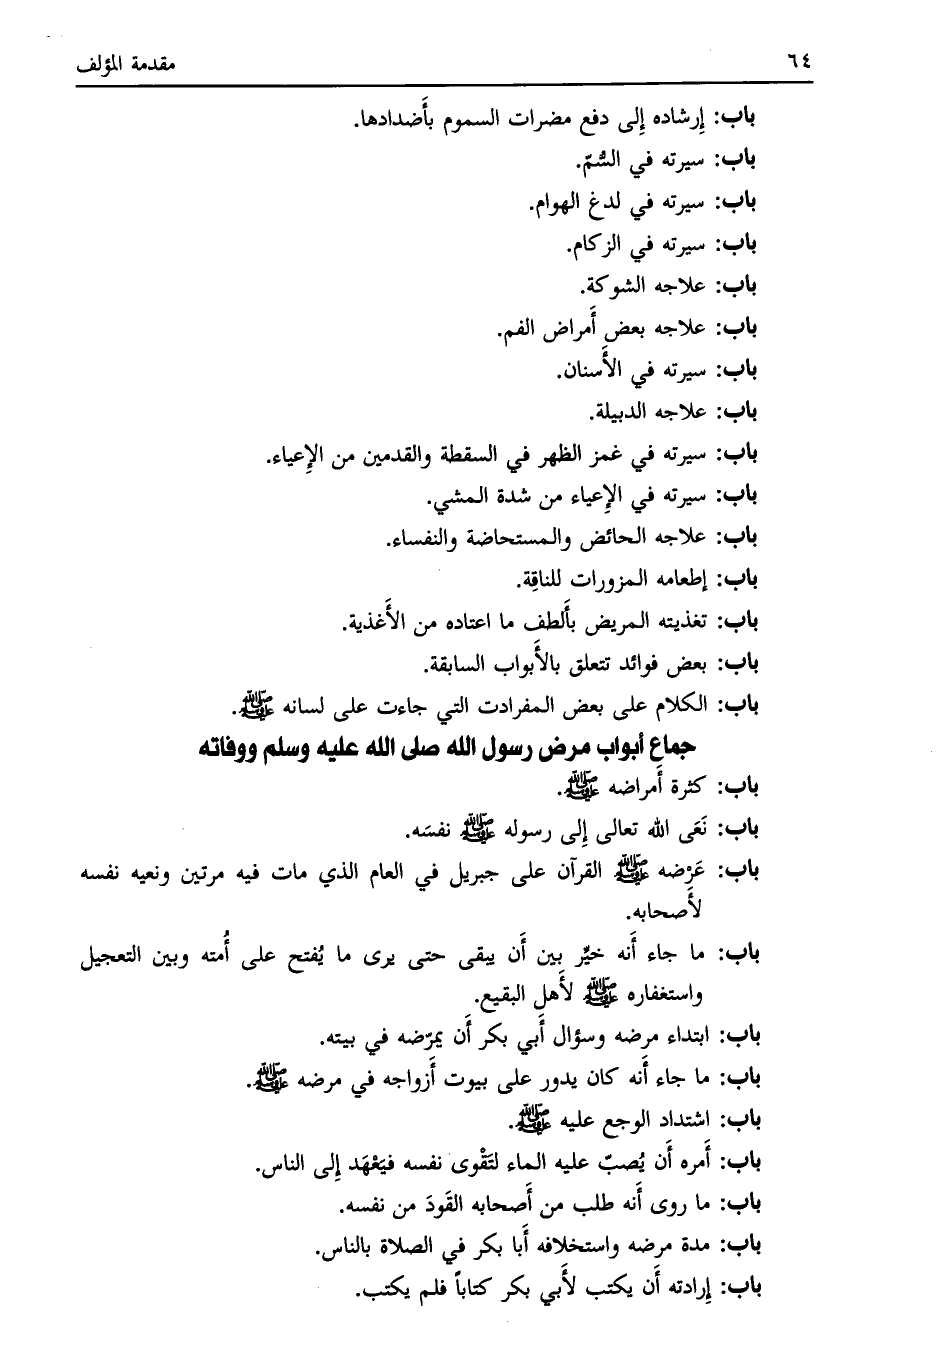 ٦٤ مقدمة المؤلف
باب: إِرشاده إِلى دفع مضرات السموم بأَضدادها.
باب: سيرته في السُّمّ.
باب: سيرته في لدغ الهوام.
باب: سيرته في الزكام.
باب: علاجه الشوكة.
باب: علاجه بعض أَمراض الفم.
باب: سيرته في الأَسنان.
باب: علاجه الدبيلة.
باب: سيرته في غمز الظهر في السقطة والقدمين من الإِعياء.
باب: سيرته في الإِعياء من شدة المشي.
باب: علاجه الحائض والمستحاضة والنفساء.
باب: إطعامه المزورات للناقِة.
باب: تغذيته المريض بأَلطف ما اعتاده من الأَغذية.
باب: بعض فوائد تتعلق بالأَبواب السابقة.
باب: الكلام على بعض المفرادت التي جاءت على لسانه ﷺ.
جماع أبواب مرض رسول الله صلى الله عليه وسلم ووفاته
باب: كثرة أَمراضه ﷺ.
باب: نَعَى الله تعالى إِلى رسوله ﷺ نفسَه.
باب: عَرْضه ﷺ القرآن على جبريل في العام الذي مات فيه مرتين ونعيه نفسه
لأَصحابه.
باب: ما جاء أَنه خيِّر بين أَن يبقى حتى يرى ما يُفتح على أُمته وبين التعجيل
واستغفاره ﷺ لأَهل البقيع.
باب: ابتداء مرضه وسؤال أَبي بكر أَن يمرّضه في بيته.
باب: ما جاء أَنه كان يدور على بيوت أَزواجه في مرضه ﷺ.
باب: اشتداد الوجع عليه ﷺ.
باب: أَمره أَن يُصبّ عليه الماء لتَقْوى نفسه فيَعْهَد إِلى الناس.
باب: ما روى أَنه طلب من أَصحابه القَودَ من نفسه.
باب: مدة مرضه واستخلافه أَبا بكر في الصلاة بالناس.
باب: إِرادته أَن يكتب لأَبي بكر كتاباً فلم يكتب.